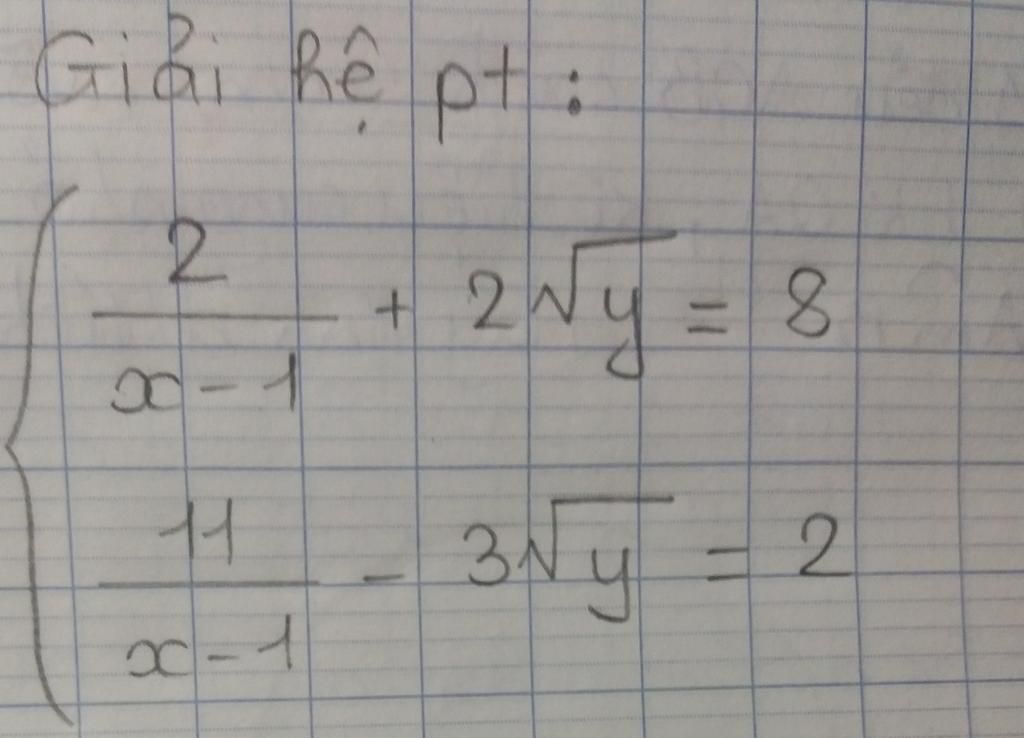 Giải hệ pt:
2/(x-1) + 2√y = 8
11/(x-1) - 3√y = 2